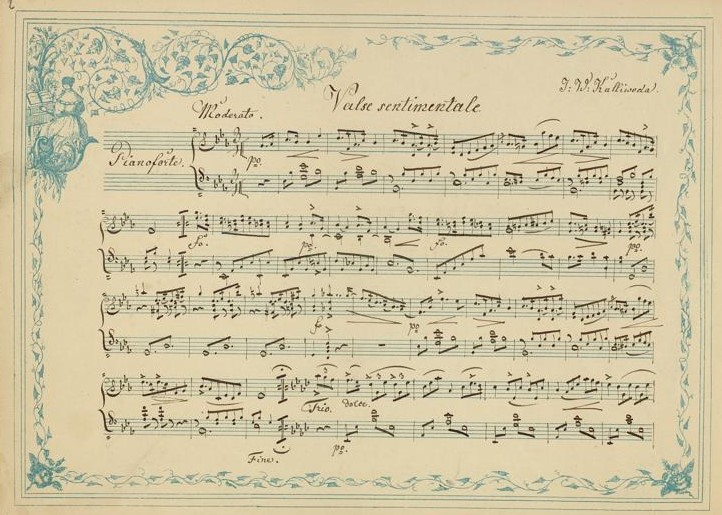 Valse sentimentale
J: W: Kalliwoda.
Moderato.
Pianoforte.
po
fo. po fo. po
fo po
Trio. dolce. 3 3 3
Fine. po